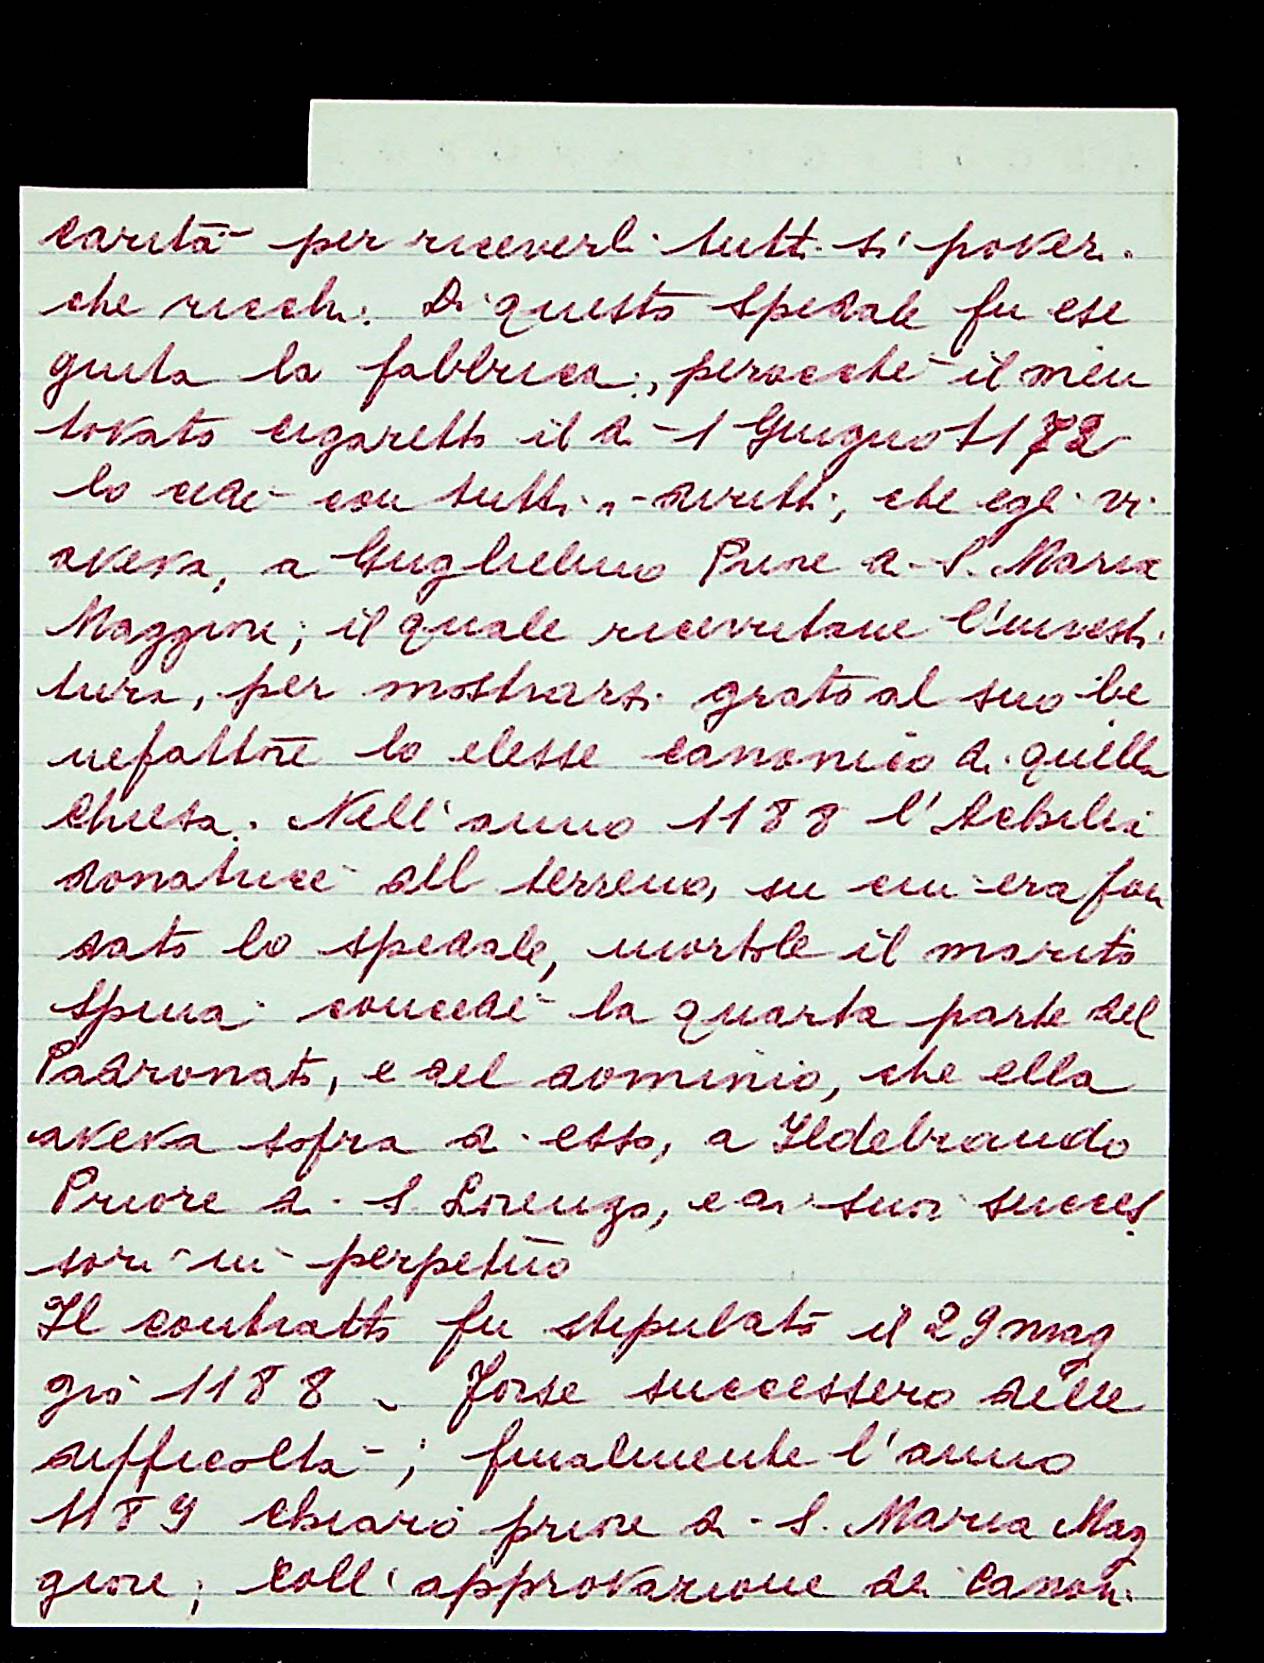 carità per riceverli tutti sì poveri
che ricchi. Di questo spedale fu ese
guita la fabbrica, perocché il men
tovato cigaretto il di 1 Giugno 1172
lo cedè con tutti i diritti, che egli vi
aveva, a Guglielmo Priore di S. Maria
Maggiore; il quale ricevutane l'investi
tura, per mostrarsi grato al suo be
nefattore lo elesse canonico di quella
Chiesa. Nell'anno 1188 l'
donatrice del terreno, su cui era fon
dato lo spedale, mortole il marito
Spina concedè la quarta parte del
Padronato, e del dominio, che ella
aveva sopra di esso, a Ildebrando
Priore di S. Lorenzo, e ai suoi succes
sori in perpetuo
Il contratto fu stipulato il 29 mag
gio 1188 - Forse successero delle
difficoltà; finalmente l'anno
1189 Chiaro priore di S. Maria Mag
giore, coll'approvazione dei Canoni